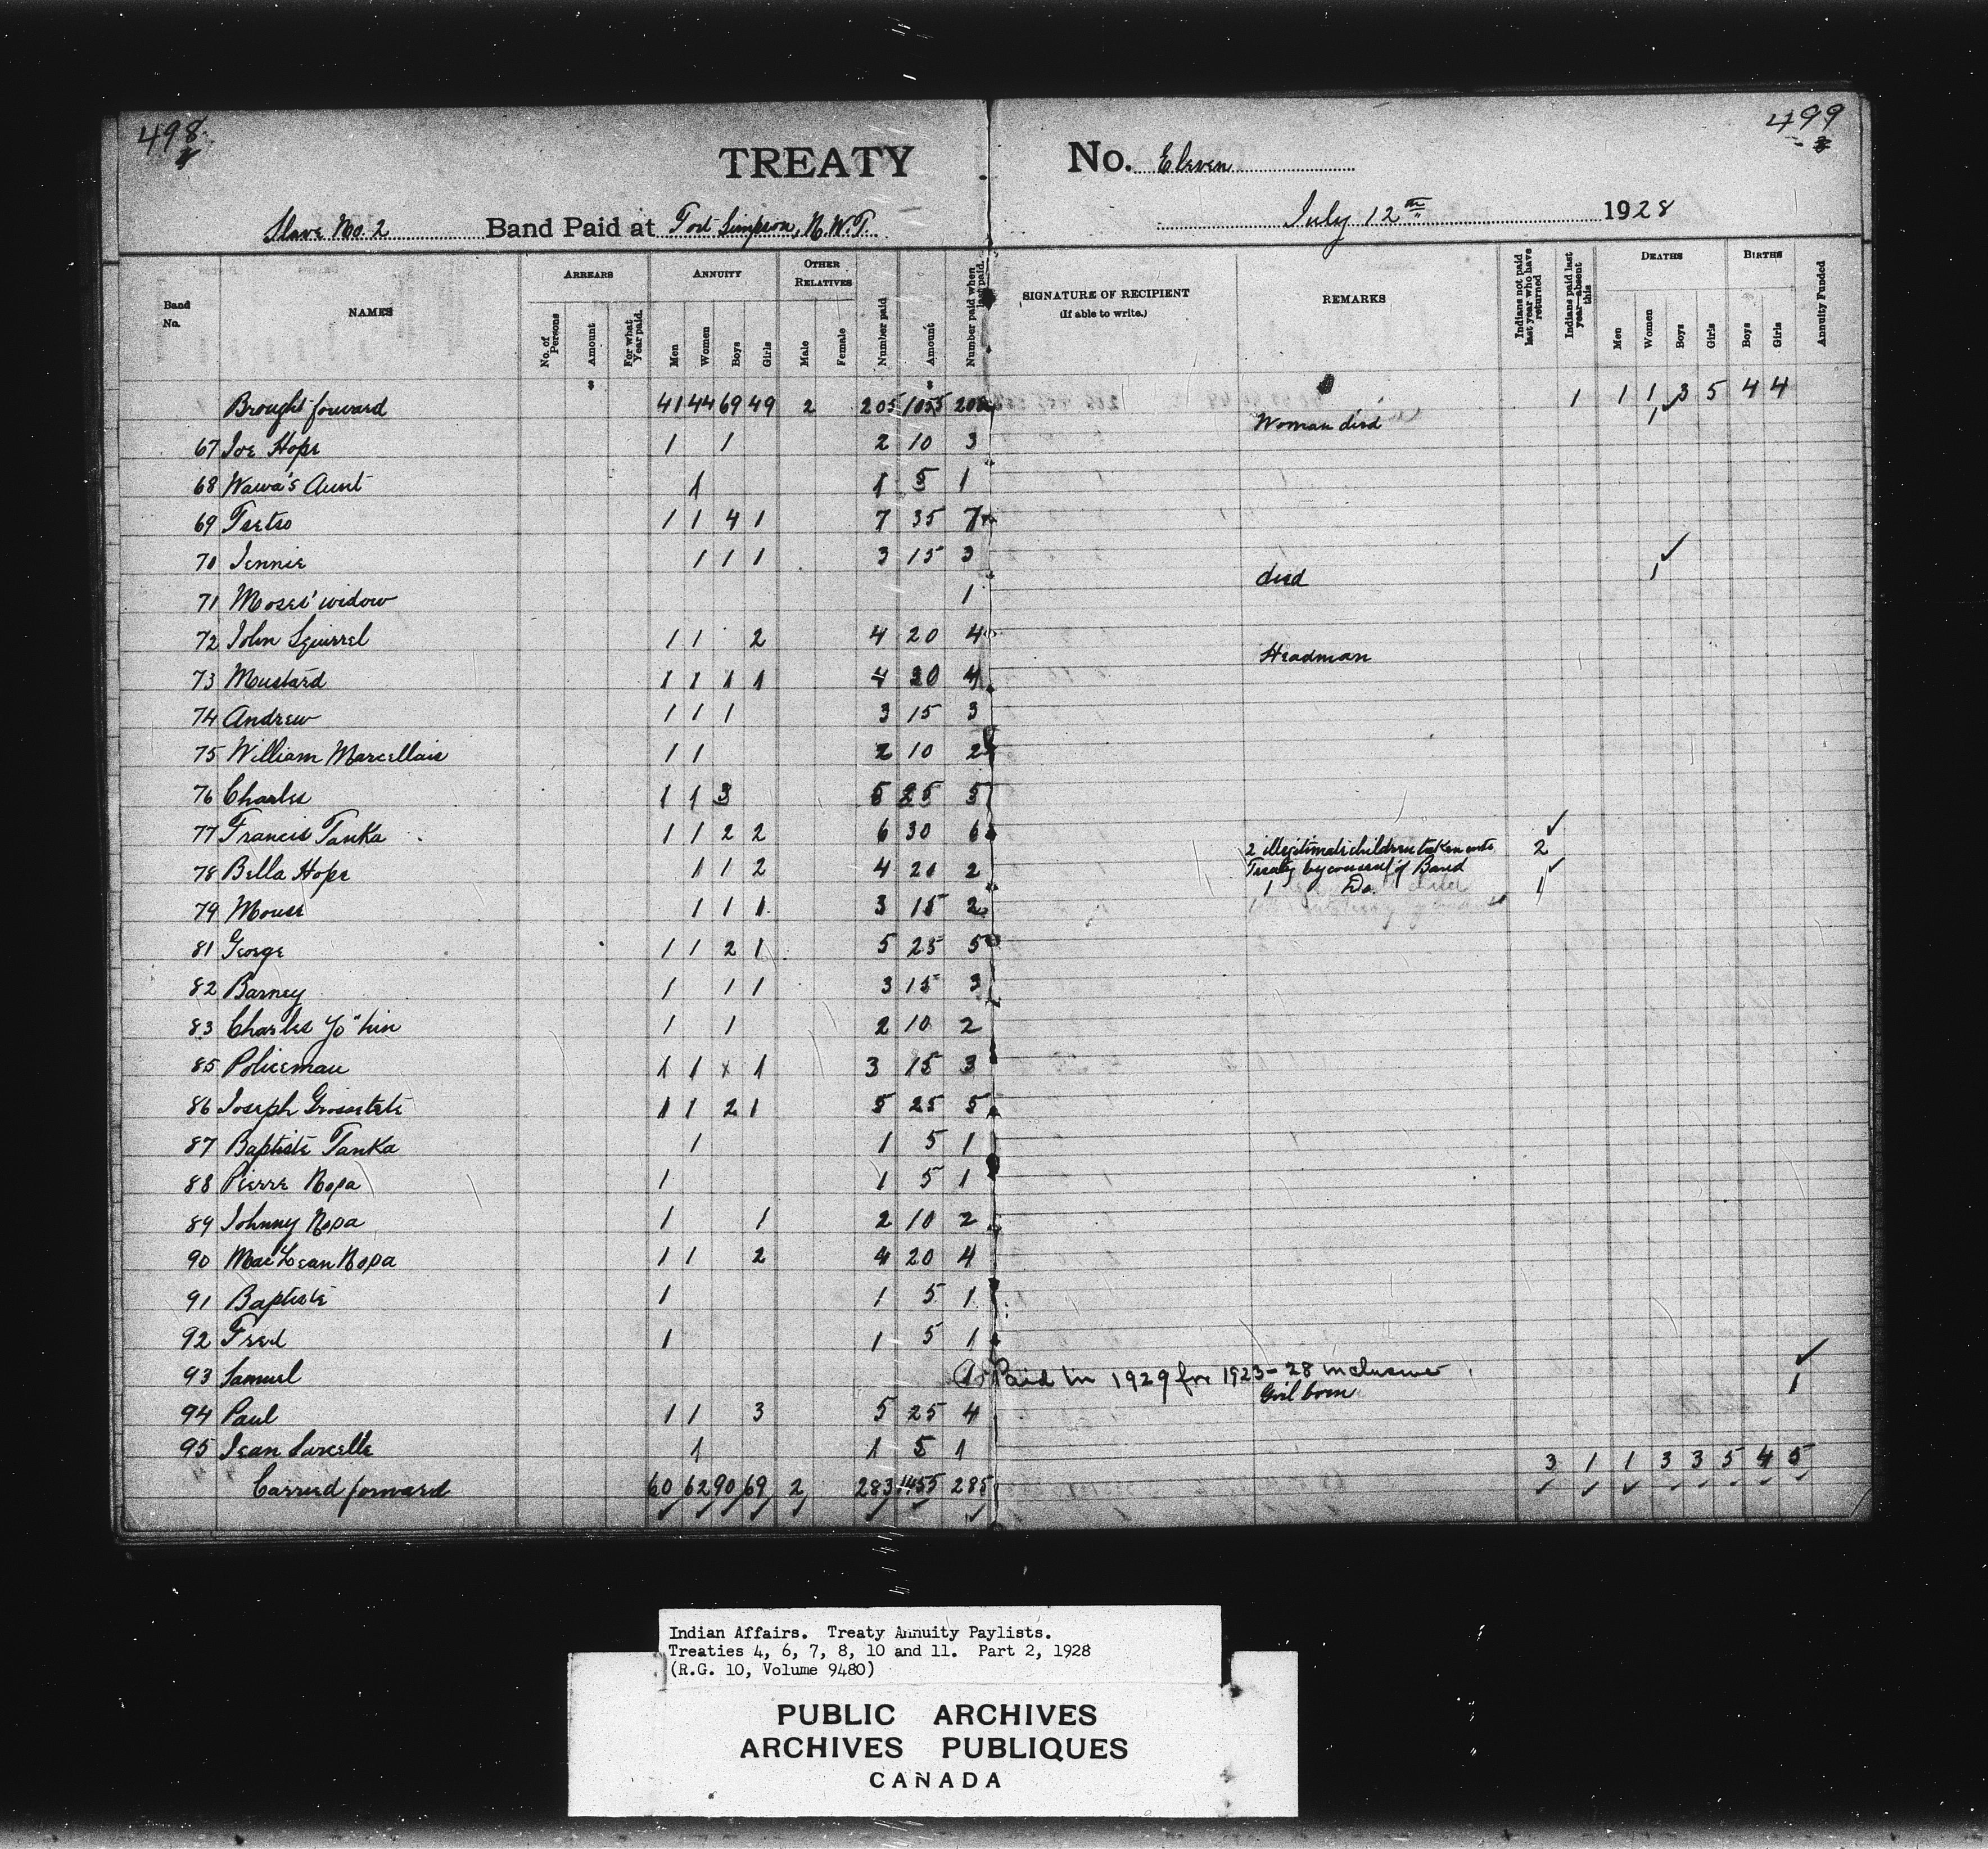 498
499
TREATY No. Eleven
Slave No. 2 Band Paid at Fort Simpson, N.W.T. July 12th 1928
Band No. NAMES ARREARS No. of Persons Amount For what Year paid. ANNUITY Men Women Boys Girls OTHER RELATIVES Male Female Number paid Amount Number paid when last paid. SIGNATURE OF RECIPIENT (If able to write.) REMARKS Indians not paid last year who have returned Indians paid last year—absent this DEATHS Men Women Boys Girls BIRTHS Boys Girls Annuity Funded
Brought forward 41 44 69 49 2 205 1055 1 1 1 3 5 4 4
67 Joe Hope 1 1 2 10 3 Woman died 1
68 Wawa's Aunt 1 1 5 1
69 Tsetso 1 1 4 1 7 35 7
70 Jennie 1 1 1 3 15 3
71 Moses' widow 1 died 1
72 John Squirrel 1 1 2 4 20 4
73 Mustard 1 1 1 1 4 20 4 Headman
74 Andrew 1 1 1 3 15 3
75 William Marcellais 1 1 2 10 2
76 Charles 1 1 3 5 25 5
77 Francis Tanka 1 1 2 2 6 30 6
78 Bella Hope 1 1 2 4 20 2 2 illegitimate children taken into Treaty by consent of Band 2
79 Mouse 1 1 1 3 15 2 1 Do. 1
81 George 1 1 2 1 5 25 5
82 Barney 1 1 1 3 15 3
83 Charles Yo"hin 1 1 2 10 2
85 Policeman 1 1 x 1 3 15 3
86 Joseph Grossetete 1 1 2 1 5 25 5
87 Baptiste Tanka 1 1 5 1
88 Pierre Nopa 1 1 5 1
89 Johnny Nopa 1 1 2 10 2
90 MacLean Nopa 1 1 2 4 20 4
91 Baptiste 1 1 5 1
92 Fred 1 1 5 1
93 Samuel Paid in 1929 for 1923-28 inclusive
94 Paul 1 1 3 5 25 4 Girl born 1
95 Jean Sarcelle 1 1 5 1
Carried forward 60 62 90 69 2 283 1455 285 3 1 1 3 3 5 4 5
Indian Affairs. Treaty Annuity Paylists.
Treaties 4, 6, 7, 8, 10 and 11. Part 2, 1928
(R.G. 10, Volume 9480)
PUBLIC ARCHIVES
ARCHIVES PUBLIQUES
CANADA